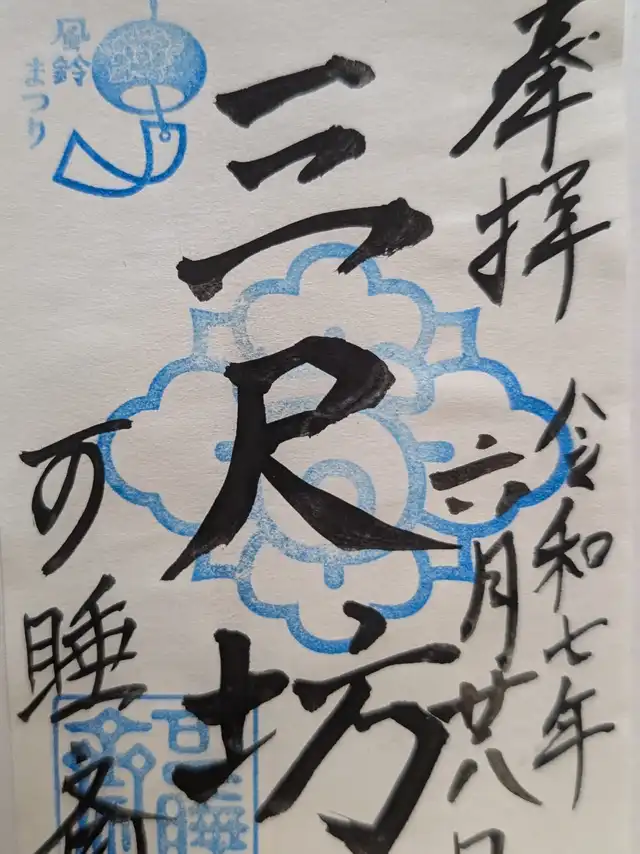 奉拝
令和七年
六月廿八日
三尺坊
可睡斎
風鈴
まつり